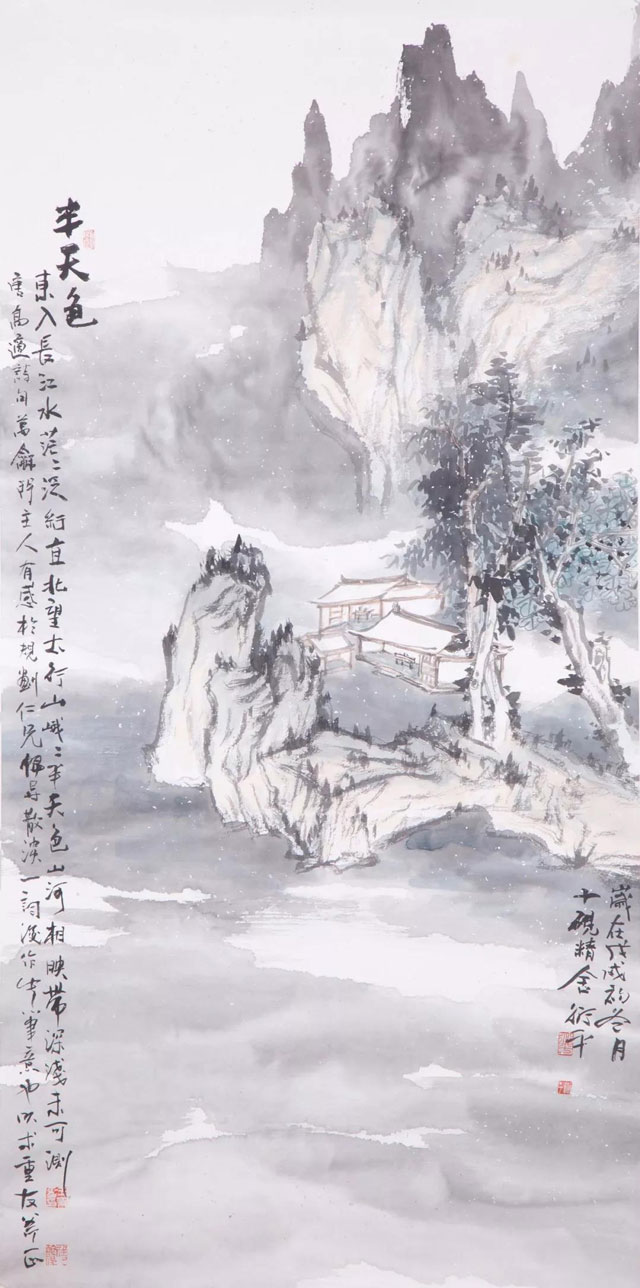 半天色
東入長江水茫々泛紆直北望太行山峨々半天色山河相映帶深淺未可測
唐高適詩句萬龢主人有感於仁兄散淡一詞後作筆意也以求重友斧正
歲在戊戌初冬月
十硯精舍衍平